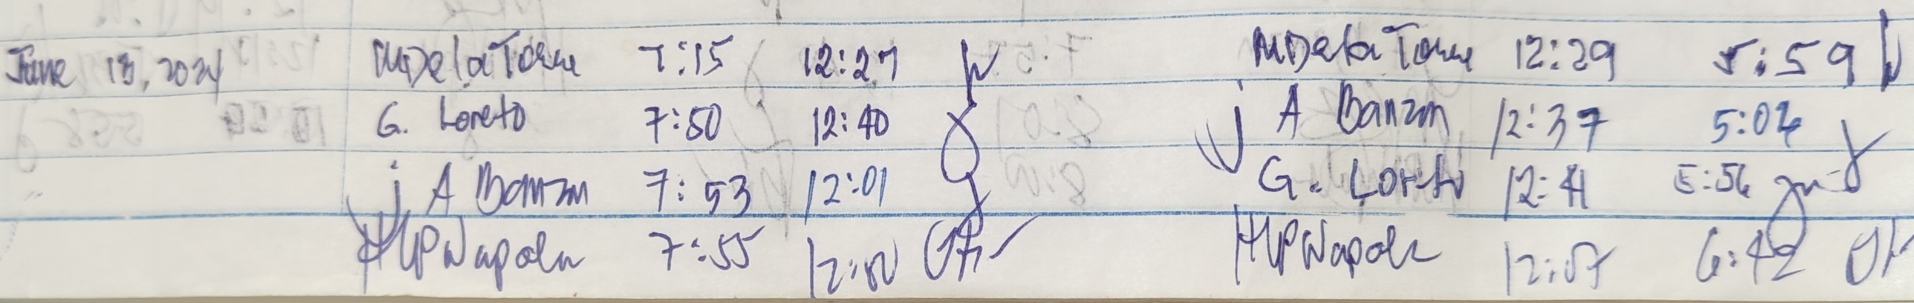 June 13, 2024 MDelaTorre 7:15 12:27 MDelaTorre 12:29 5:59
G. Loreto 7:50 12:40 j A Banzon 12:37 5:04
j A Banzon 7:53 12:01 G. Loreto 12:41 5:56
HLPNapola 7:55 12:00 HLPNapola 12:57 6:42